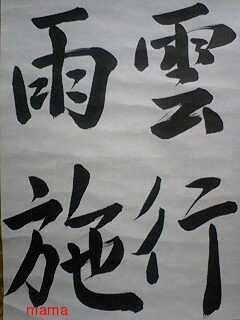 雲行
雨施
mama